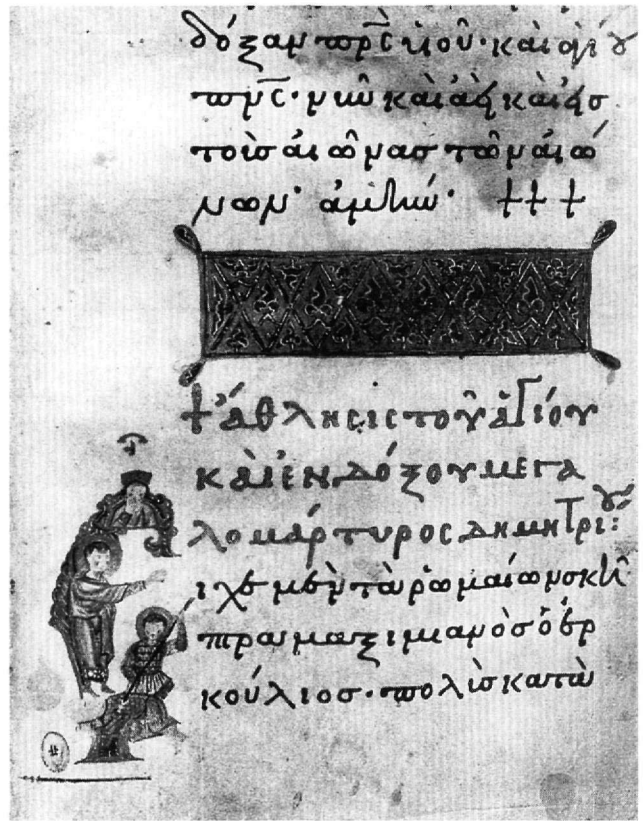 δόξαν πρ̅ς κ̀ υ̅ιου· καὶ ἁγίου
πν̅ς· νῦν καὶ ἀεὶ καὶ εἰσ
τοὺσ αἰῶνασ τῶν αἰώ
νων· ἀμήν· +++
+ Ἄθλησις τοῦ ἁγίου
καὶ ἐνδόξου μεγα
λομάρτυρος Δημητρίου:
ιχε μὲν τὰ ῥωμαίων σκῆ
πτρα μαξιμιανὸσ ὁ ἑρ
κούλιοσ· πολὶσ κατὰ